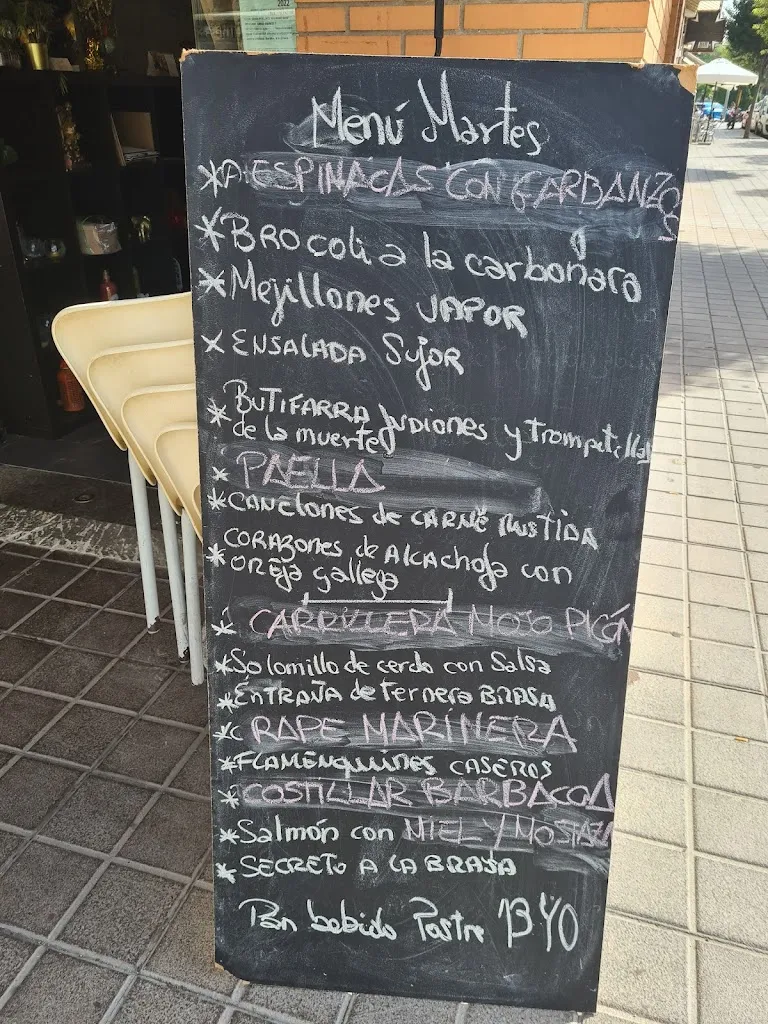 2022
Menú Martes
* ESPINACAS CON GARBANZOS
* BROCOLI a la carbonara
* Mejillones VAPOR
* ENSALADA
* BUTIFARRA JUDIONES y trompetillas
de la muerte
* PAELLA
* CANELONES de CARNE RUSTIDA
* CORAZONES de ALCACHOFA con
OREJA gallega
* CARRILLERA MOJO PICÓN
* Solomillo de cerdo con Salsa
* ENTRAÑA de TERNERA BRASA
* RAPE MARINERA
* FLAMENQUINES CASEROS
* COSTILLAR BARBACOA
* Salmón con MIEL Y MOSTAZA
* SECRETO A LA BRASA
Pan bebida Postre 13'40